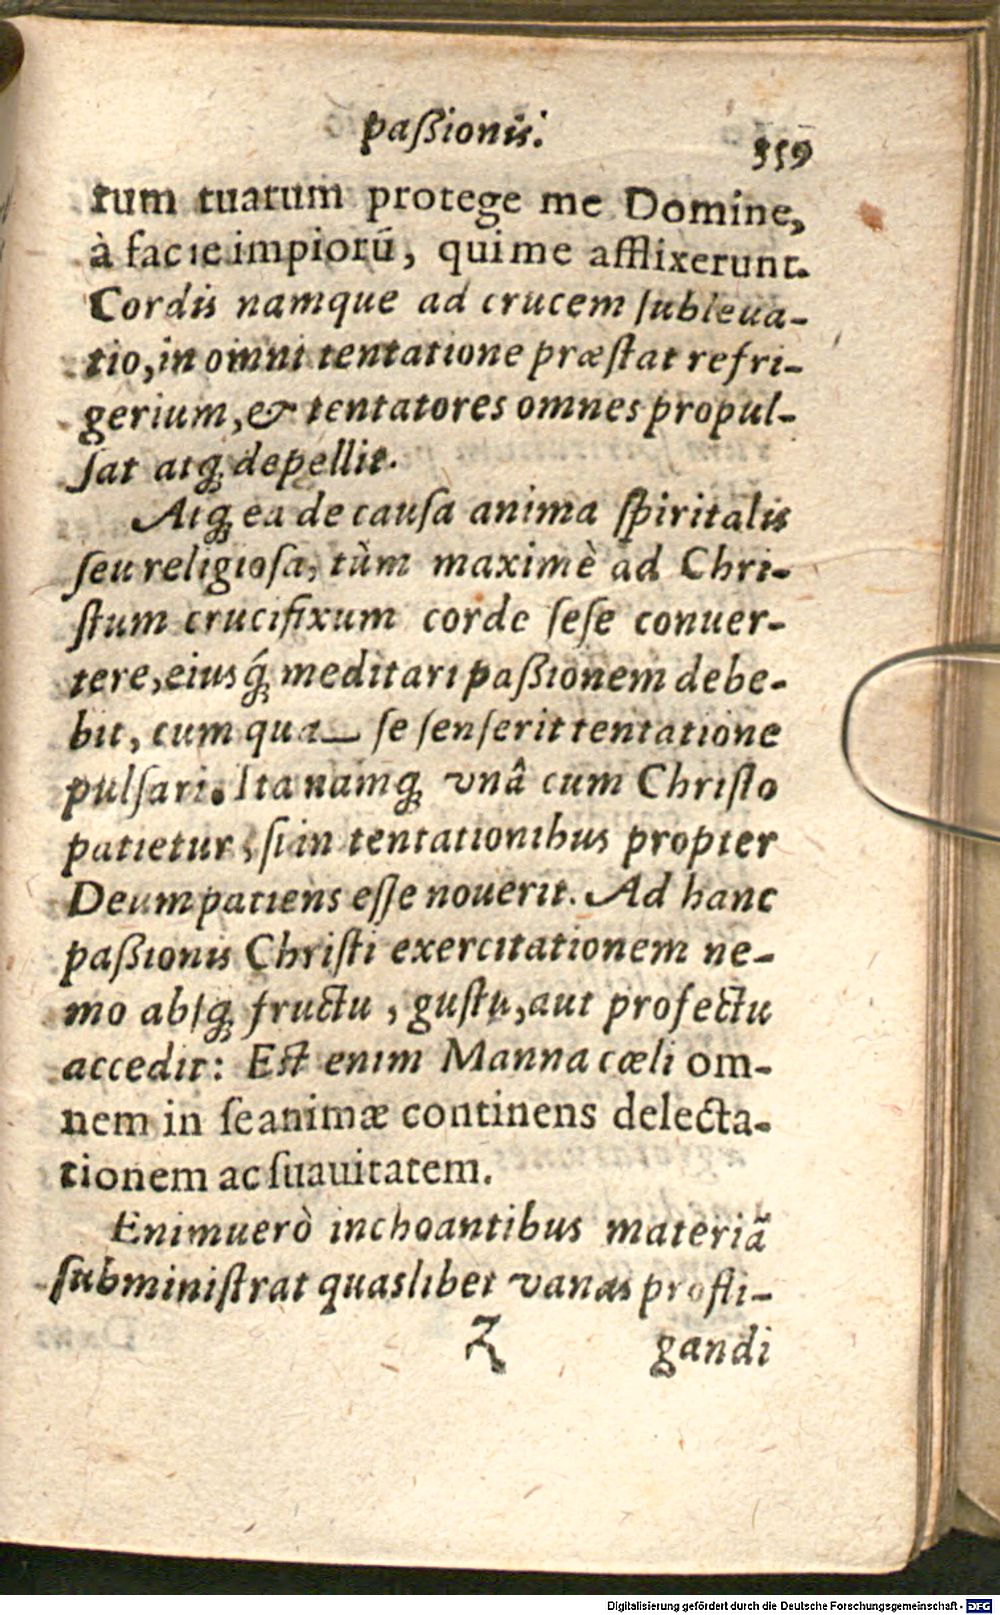 paßionis.
359
tum tuarum protege me Domine,
à facie impiorū, qui me afflixerunt.
Cordis namque ad crucem ſubleua-
tio, in omni tentatione præſtat refri-
gerium, & tentatores omnes propul-
ſat atq; depellit.
Atq; ea de cauſa anima ſpiritalis
ſeu religioſa, tùm maximè ad Chri-
ſtum crucifixum corde ſeſe conuer-
tere, eiusq́; meditari paßionem debe-
bit, cum qua_ ſe ſenſerit tentatione
pulſari. Ita namq; vnâ cum Chriſto
patietur, ſi in tentationibus propter
Deum patiens eſſe nouerit. Ad hanc
paßionis Chriſti exercitationem ne-
mo abſq; fructu, guſtu, aut profectu
accedit: Eſt enim Manna cæli om-
nem in ſe animæ continens delecta-
tionem ac ſuauitatem.
Enimuerò inchoantibus materiã
ſubminiſtrat quaslibet vanas profli-
Z gandi
Digitalisierung gefördert durch die Deutsche Forschungsgemeinschaft - DFG